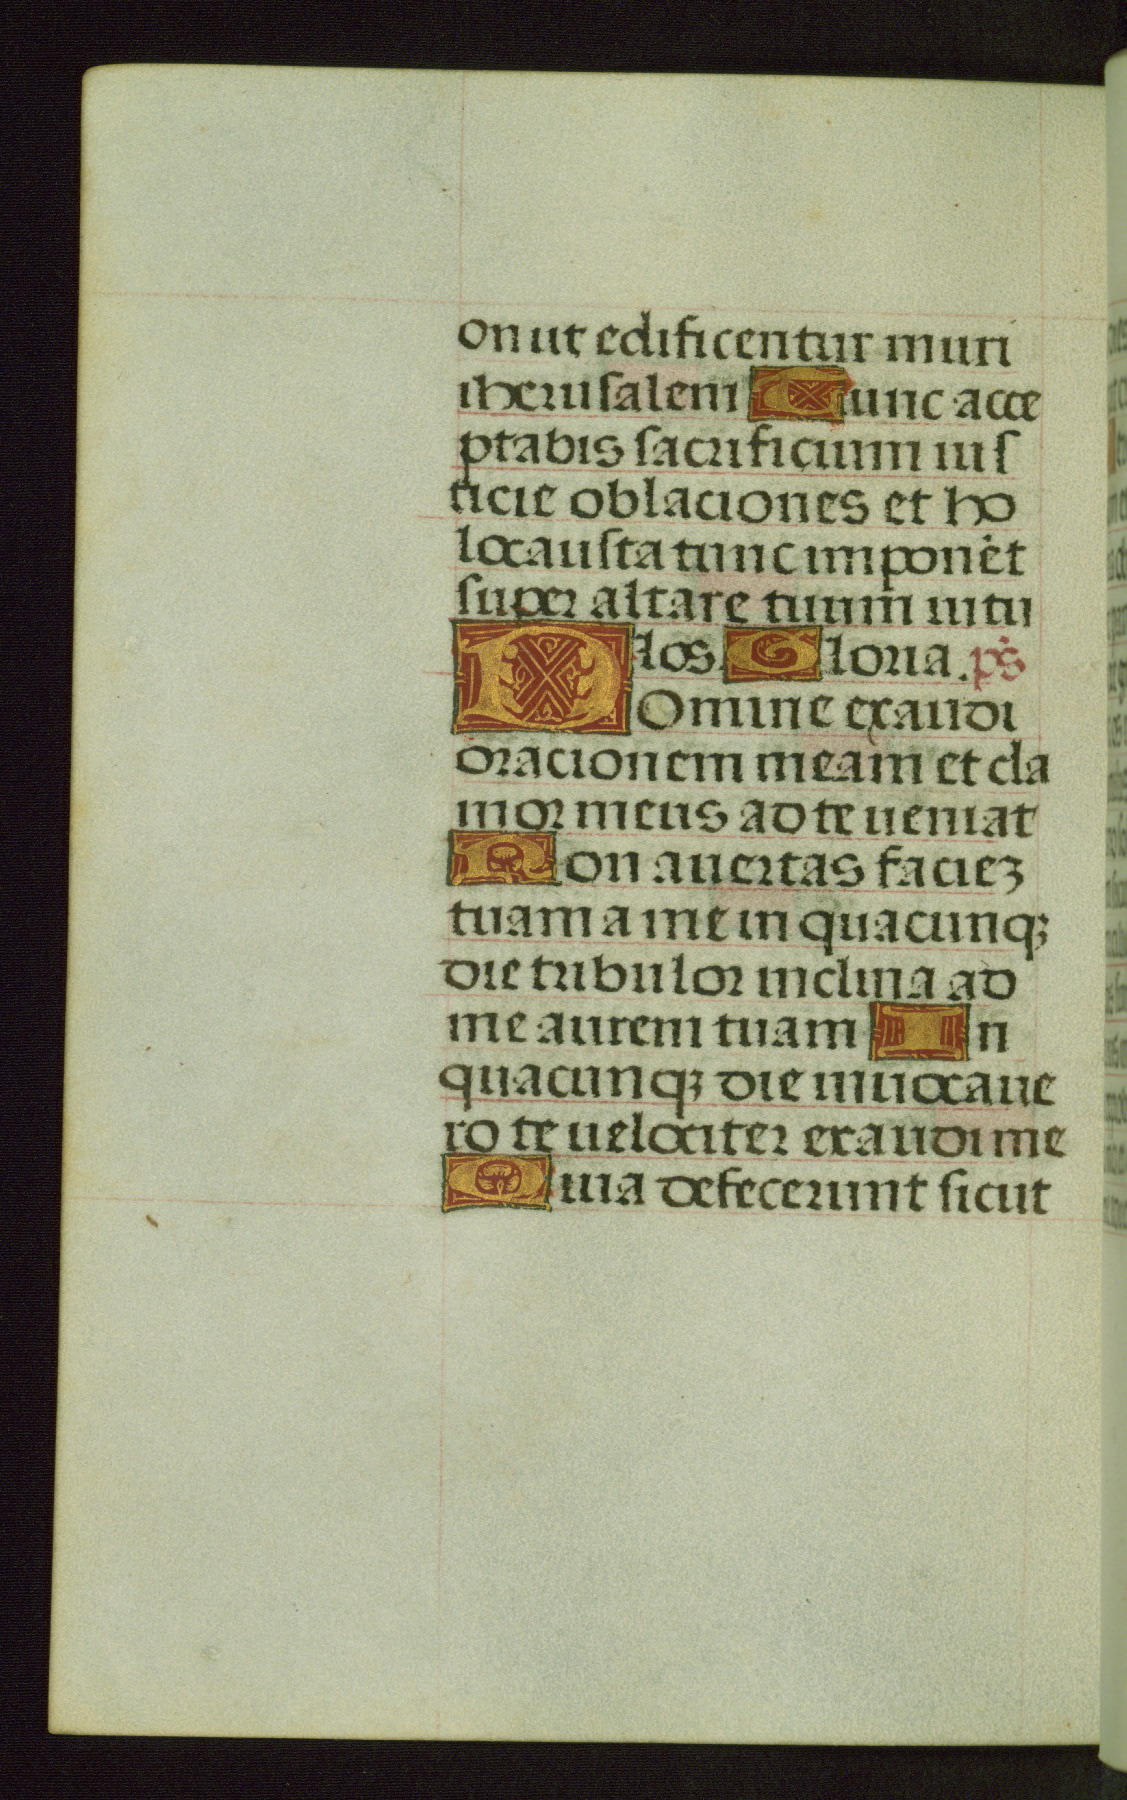 on ut edificentur muri
iherusalem Tunc acce
ptabis sacrificium ius
ticie oblaciones et ho
locausta tunc imponēt
super altare tuum uitu
los Gloria. ps̄
Domine exaudi
oracionem meam et cla
mor meus ad te ueniat
Non auertas faciez
tuam a me in quacunqꝫ
die tribulor inclina ad
me aurem tuam In
quacunqꝫ die inuocaue
ro te uelociter exaudi me
Quia defecerunt sicut